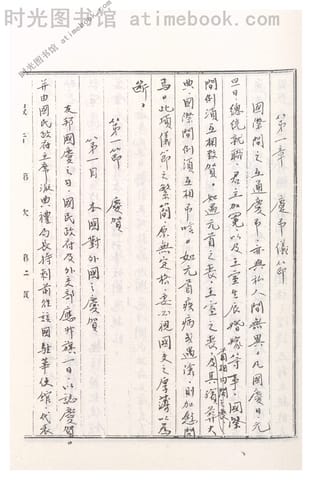 时光图书馆 www.atimebook.com
第一章　慶弔儀節
國際間之互通慶弔，亦與私人間無異，凡國慶日，元
旦日，總統就職，君主加冕以及王室生辰婚嫁等事，國際
間例須互相致賀。如遇元首之喪，王室之喪，及其殯葬大
典，國際間例須互相弔唁。如元首疾病或遇險，則加慰問
焉。此項儀節之繁簡，原無定格，要必視國交之厚薄以為
斷。
第一節　慶賀
第一目　本國對外國之慶賀
友邦國慶之日，國民政府及外交部，應升旗一日，以誌慶賀。
并由國民政府主席派典禮局長持刺前往該國駐華使館，代表
时光图书馆 www.atimebook.com